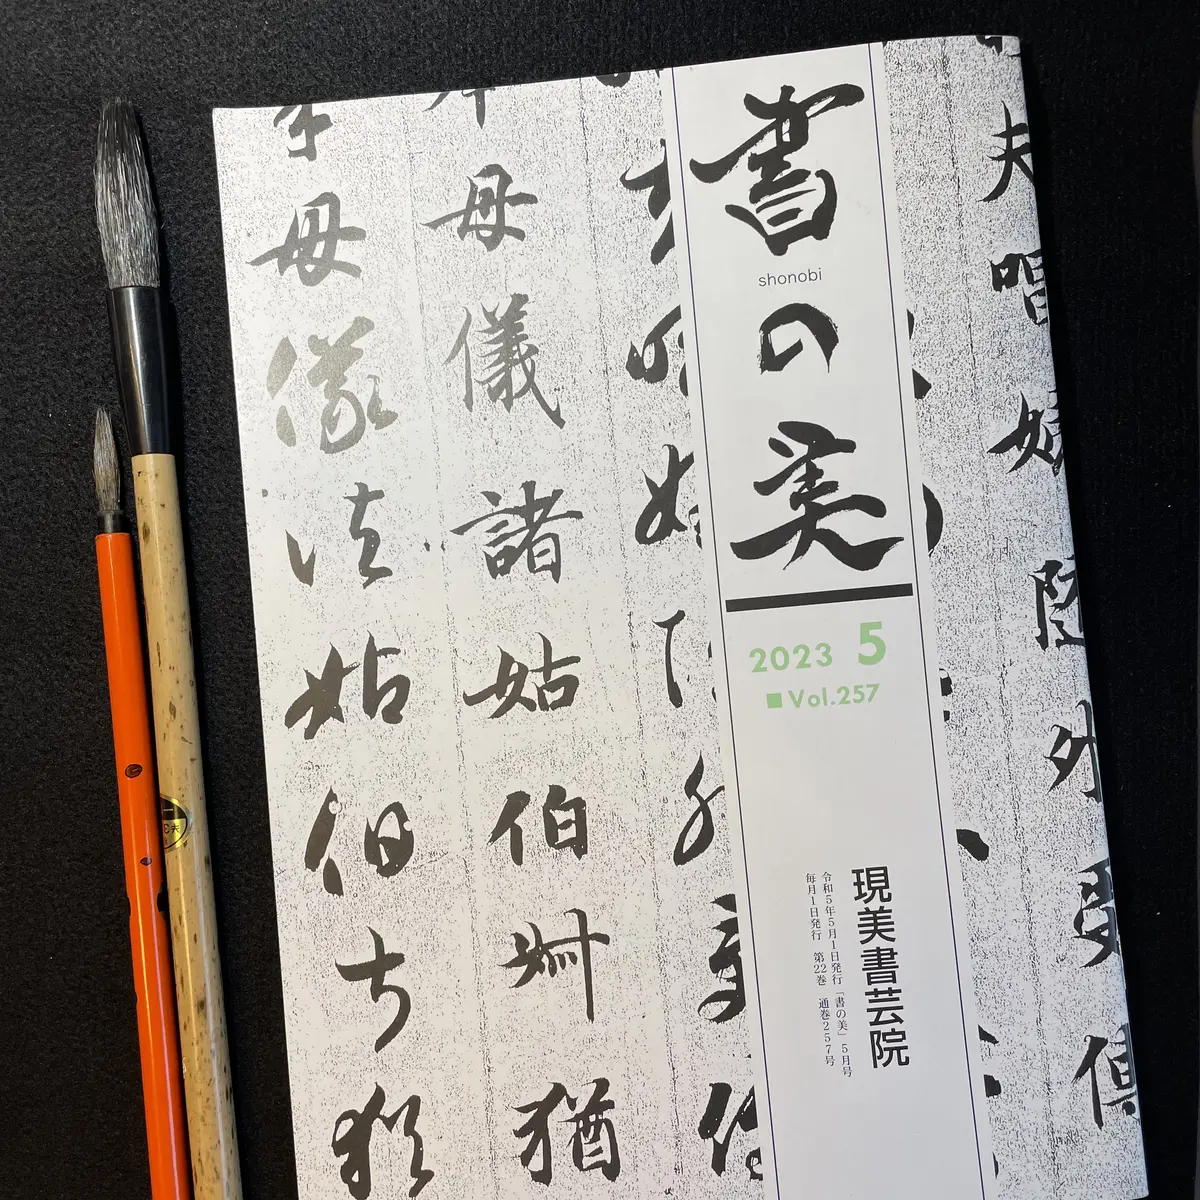 書の美
shonobi
2023 5
■Vol.257
現美書芸院
令和5年5月1日発行「書の美」5月号
毎月1日発行 第22巻 通巻257号
夫
唱
婦
随
外
受
傅
母
儀
諸
姑
伯
叔
猶
母
儀
諸
姑
伯
叔
猶